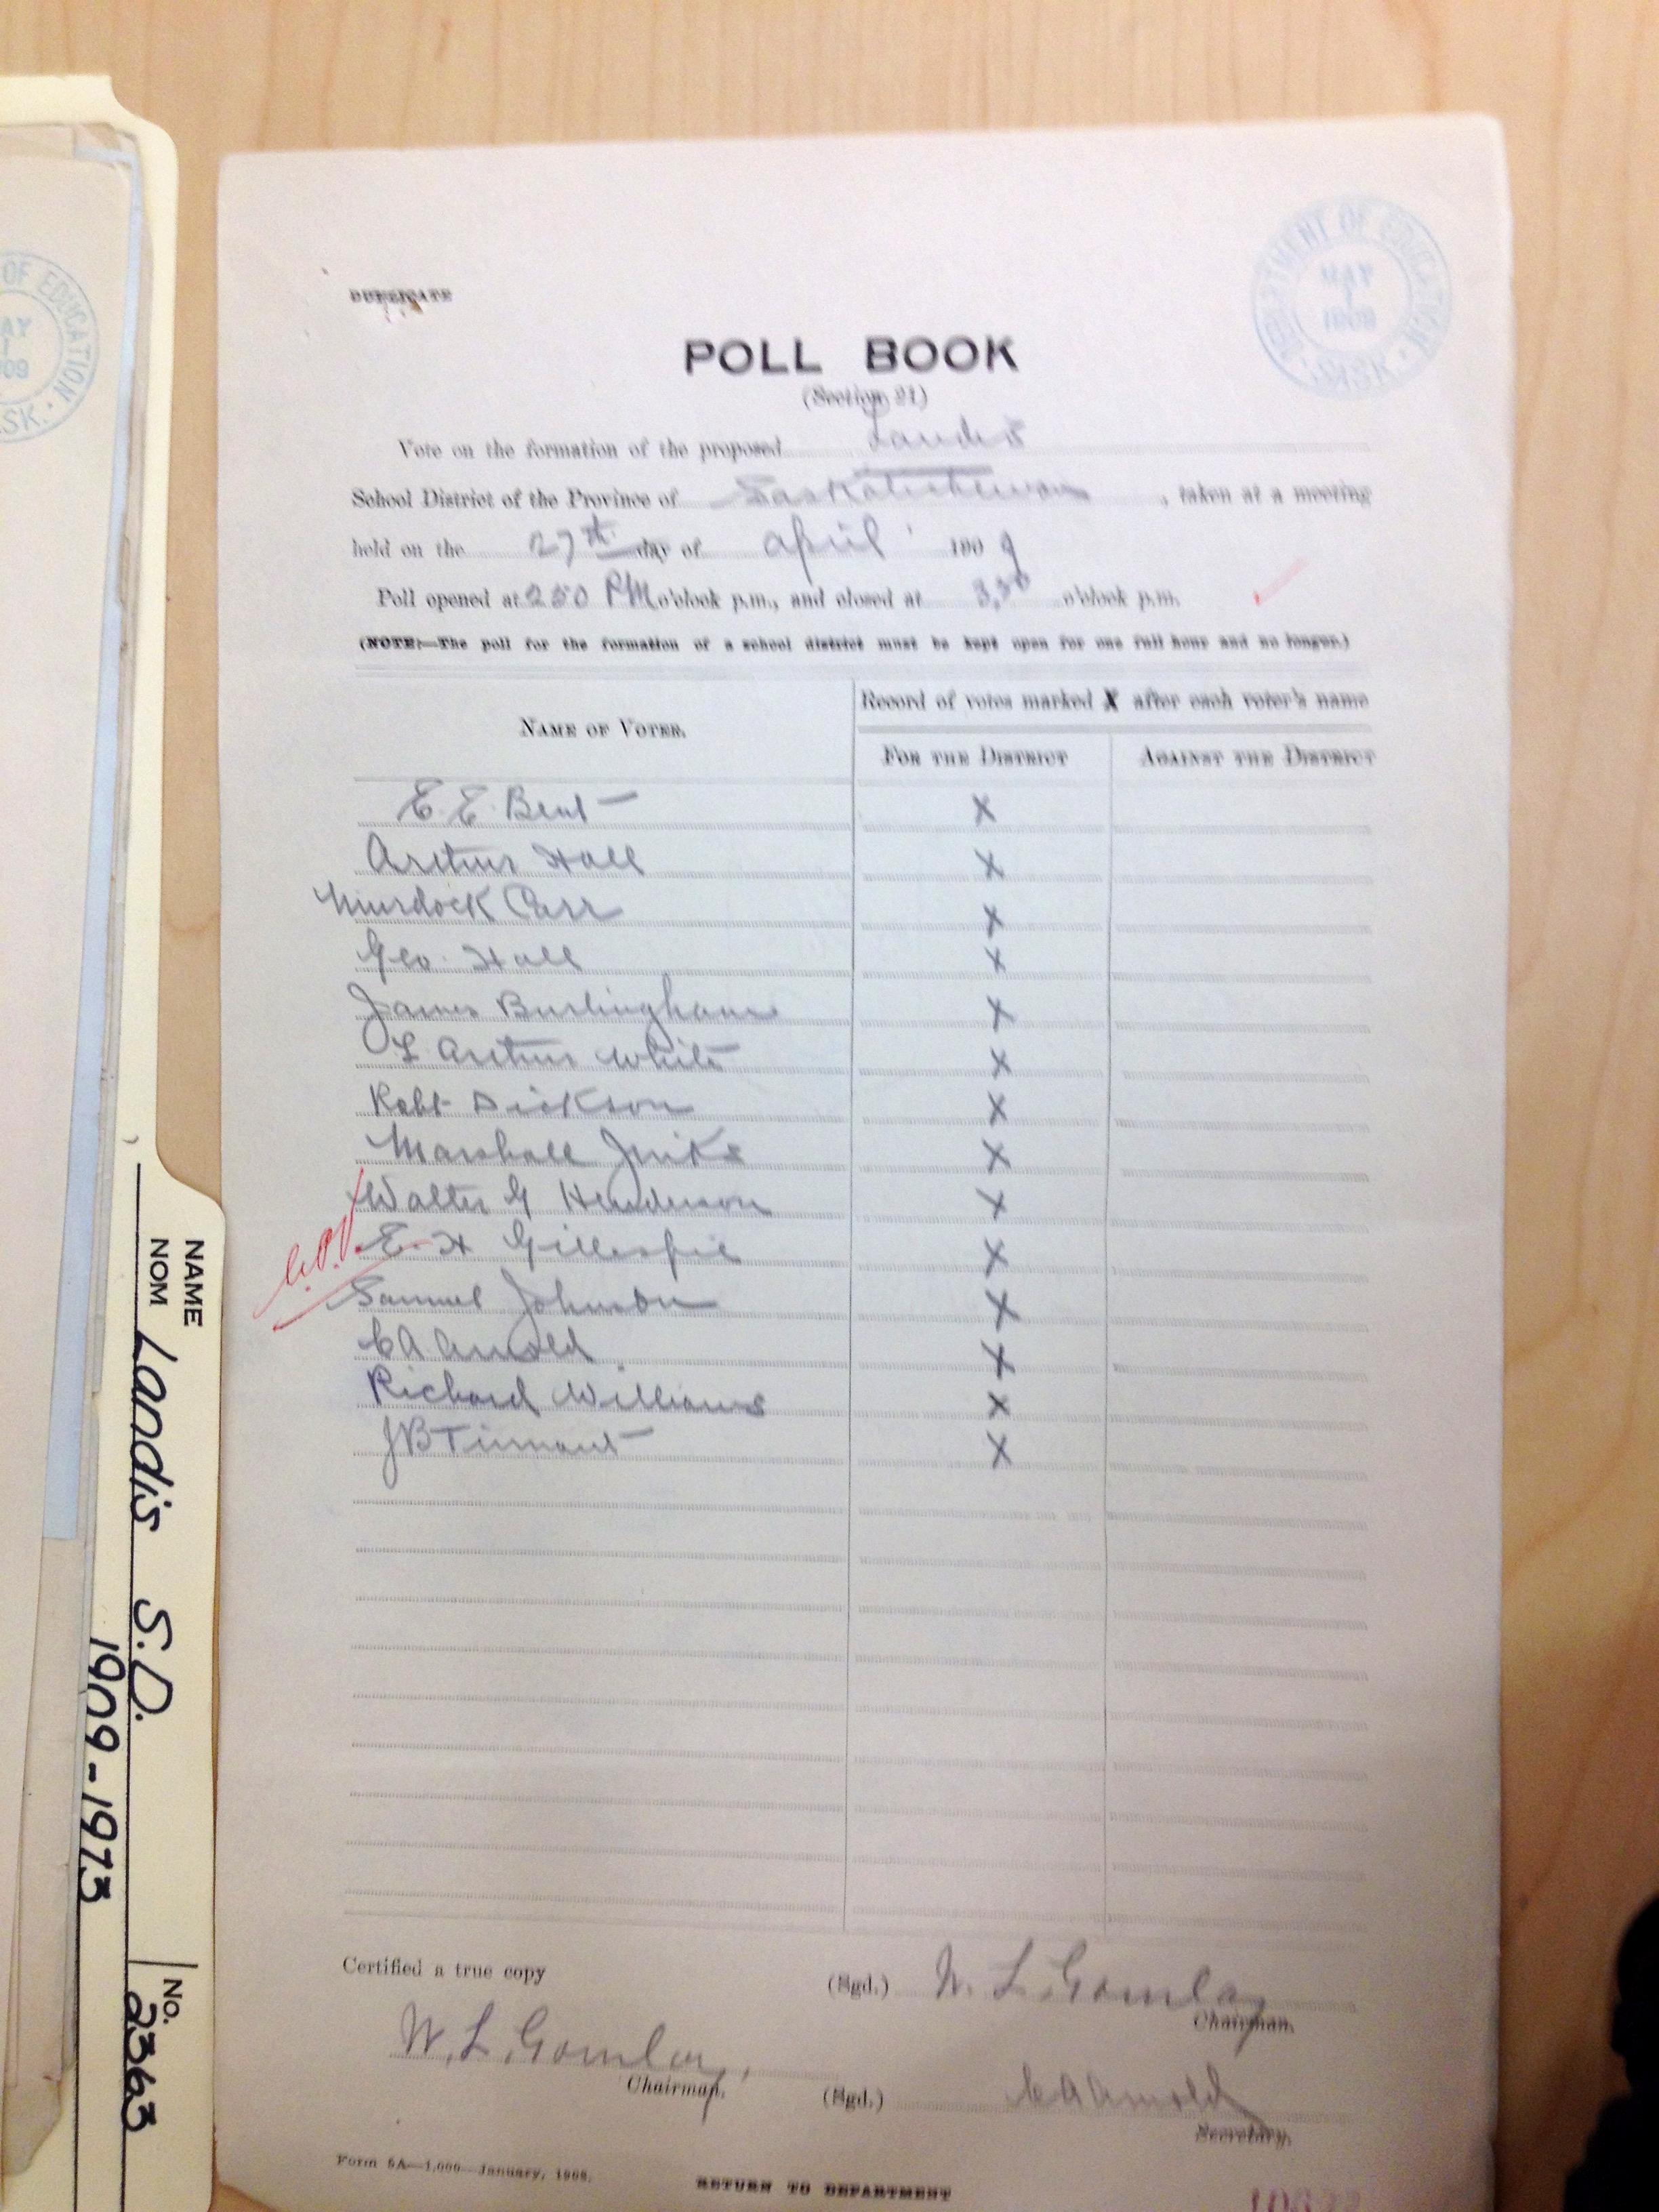 DUPLICATE
DEPARTMENT OF EDUCATION
MAY
1
1909
SASK.
OF EDUCATION
SK.
POLL BOOK
(Section 21)
Vote on the formation of the proposed Landis
School District of the Province of Saskatchewan, taken at a meeting
held on the 27th day of April 1909
Poll opened at 2 50 PM o'clock p.m., and closed at 3,50 o'clock p.m.
(NOTE:—The poll for the formation of a school district must be kept open for one full hour and no longer.)
NAME OF VOTER.
Record of votes marked X after each voter's name
FOR THE DISTRICT
AGAINST THE DISTRICT
E. E. Bent X
Arthur Hall X
Murdock Carr X
Geo. Hall X
James Burlingham X
L Arthur White X
Robt Dickson X
Marshall Jinks X
Walter G Henderson X
E. H Gillespie X
Samuel Johnson X
C A Arnold X
Richard Williams X
J B Tinnant X
Certified a true copy
(Sgd.) W. L. Gomlay
Chairman.
W. L. Gomlay
Chairman.
(Sgd.) C A Arnold
Secretary.
Form 5A—1,000—January, 1908.
RETURN TO DEPARTMENT
NAME
NOM Landis S.D.
1909-1973
No. 2363